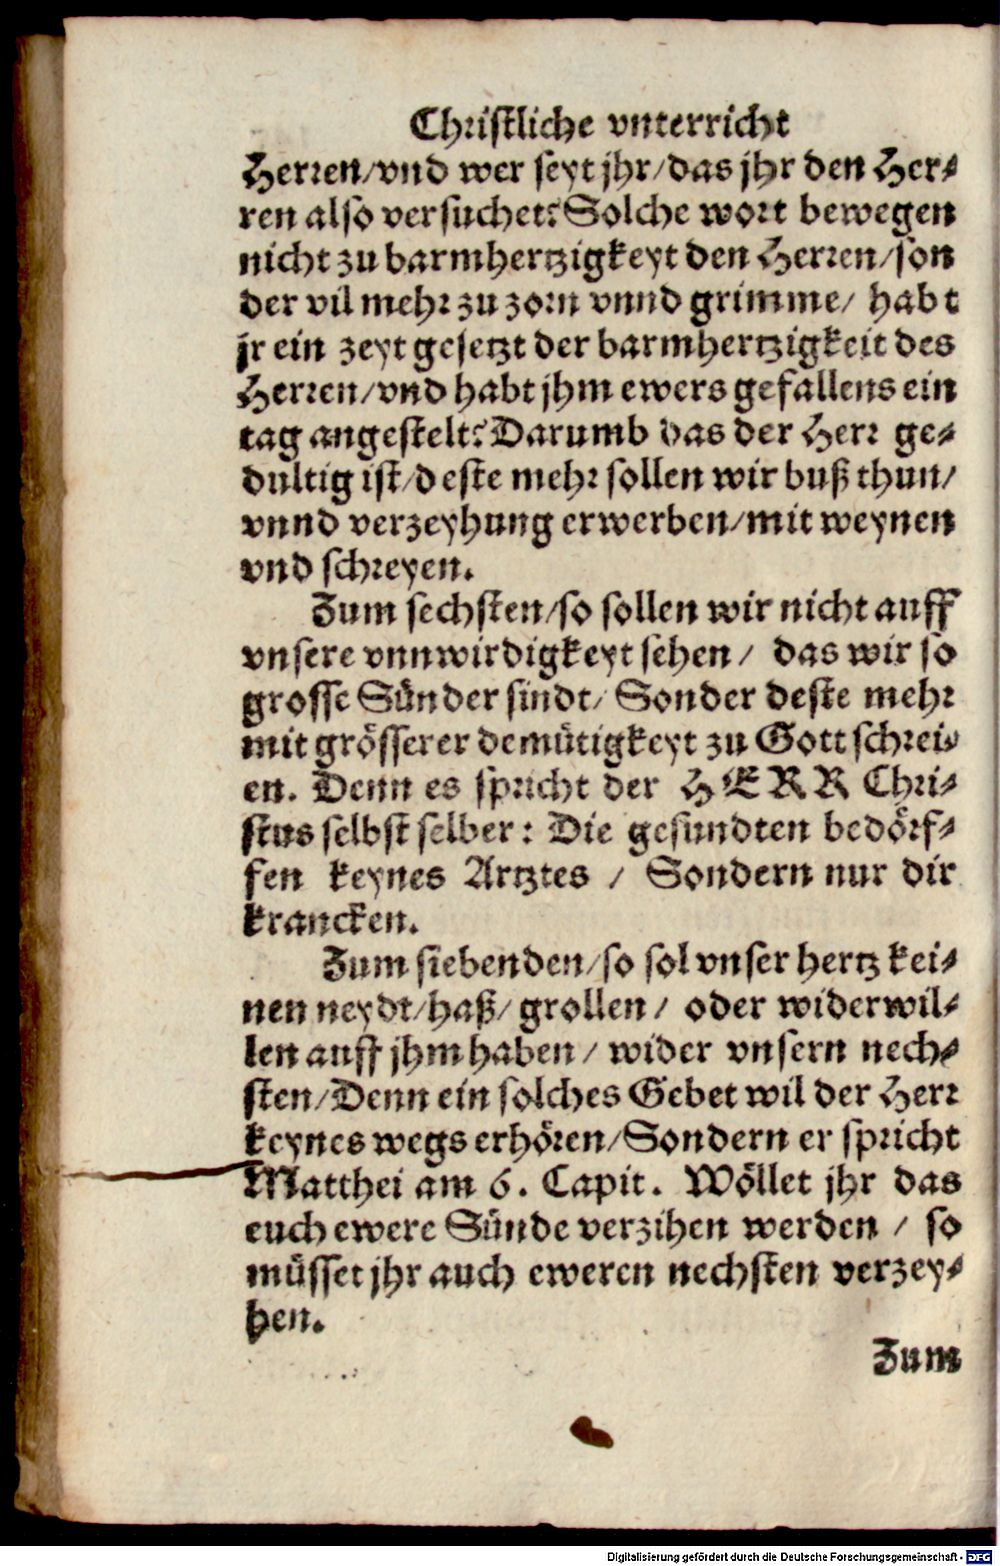 Christliche vnterricht
Herren/vnd wer seyt jhr/das jhr den Her⸗
ren also versuchet? Solche wort bewegen
nicht zu barmhertzigkeyt den Herren/son
der vil mehr zu zorn vnnd grimme/ habt
jr ein zeyt gesetzt der barmhertzigkeit des
Herren/vnd habt jhm ewers gefallens ein
tag angestelt? Darumb das der Herr ge⸗
dultig ist/deste mehr sollen wir buß thun/
vnnd verzeyhung erwerben/mit weynen
vnd schreyen.
Zum sechsten/so sollen wir nicht auff
vnsere vnnwirdigkeyt sehen/ das wir so
grosse Sünder sindt/ Sonder deste mehr
mit grösserer demütigkeyt zu Gott schrei⸗
en. Denn es spricht der HERR Chri⸗
stus selbst selber: Die gesundten bedörf⸗
fen keynes Artztes / Sondern nur dir
krancken.
Zum siebenden/so sol vnser hertz kei⸗
nen neydt/haß/ grollen/ oder widerwil⸗
len auff jhm haben/ wider vnsern nech⸗
sten/Denn ein solches Gebet wil der Herr
keynes wegs erhören/Sondern er spricht
Matthei am 6. Capit. Wöllet jhr das
euch ewere Sünde verzihen werden / so
müsset jhr auch eweren nechsten verzey⸗
hen.
Zum
Digitalisierung gefördert durch die Deutsche Forschungsgemeinschaft - DFG